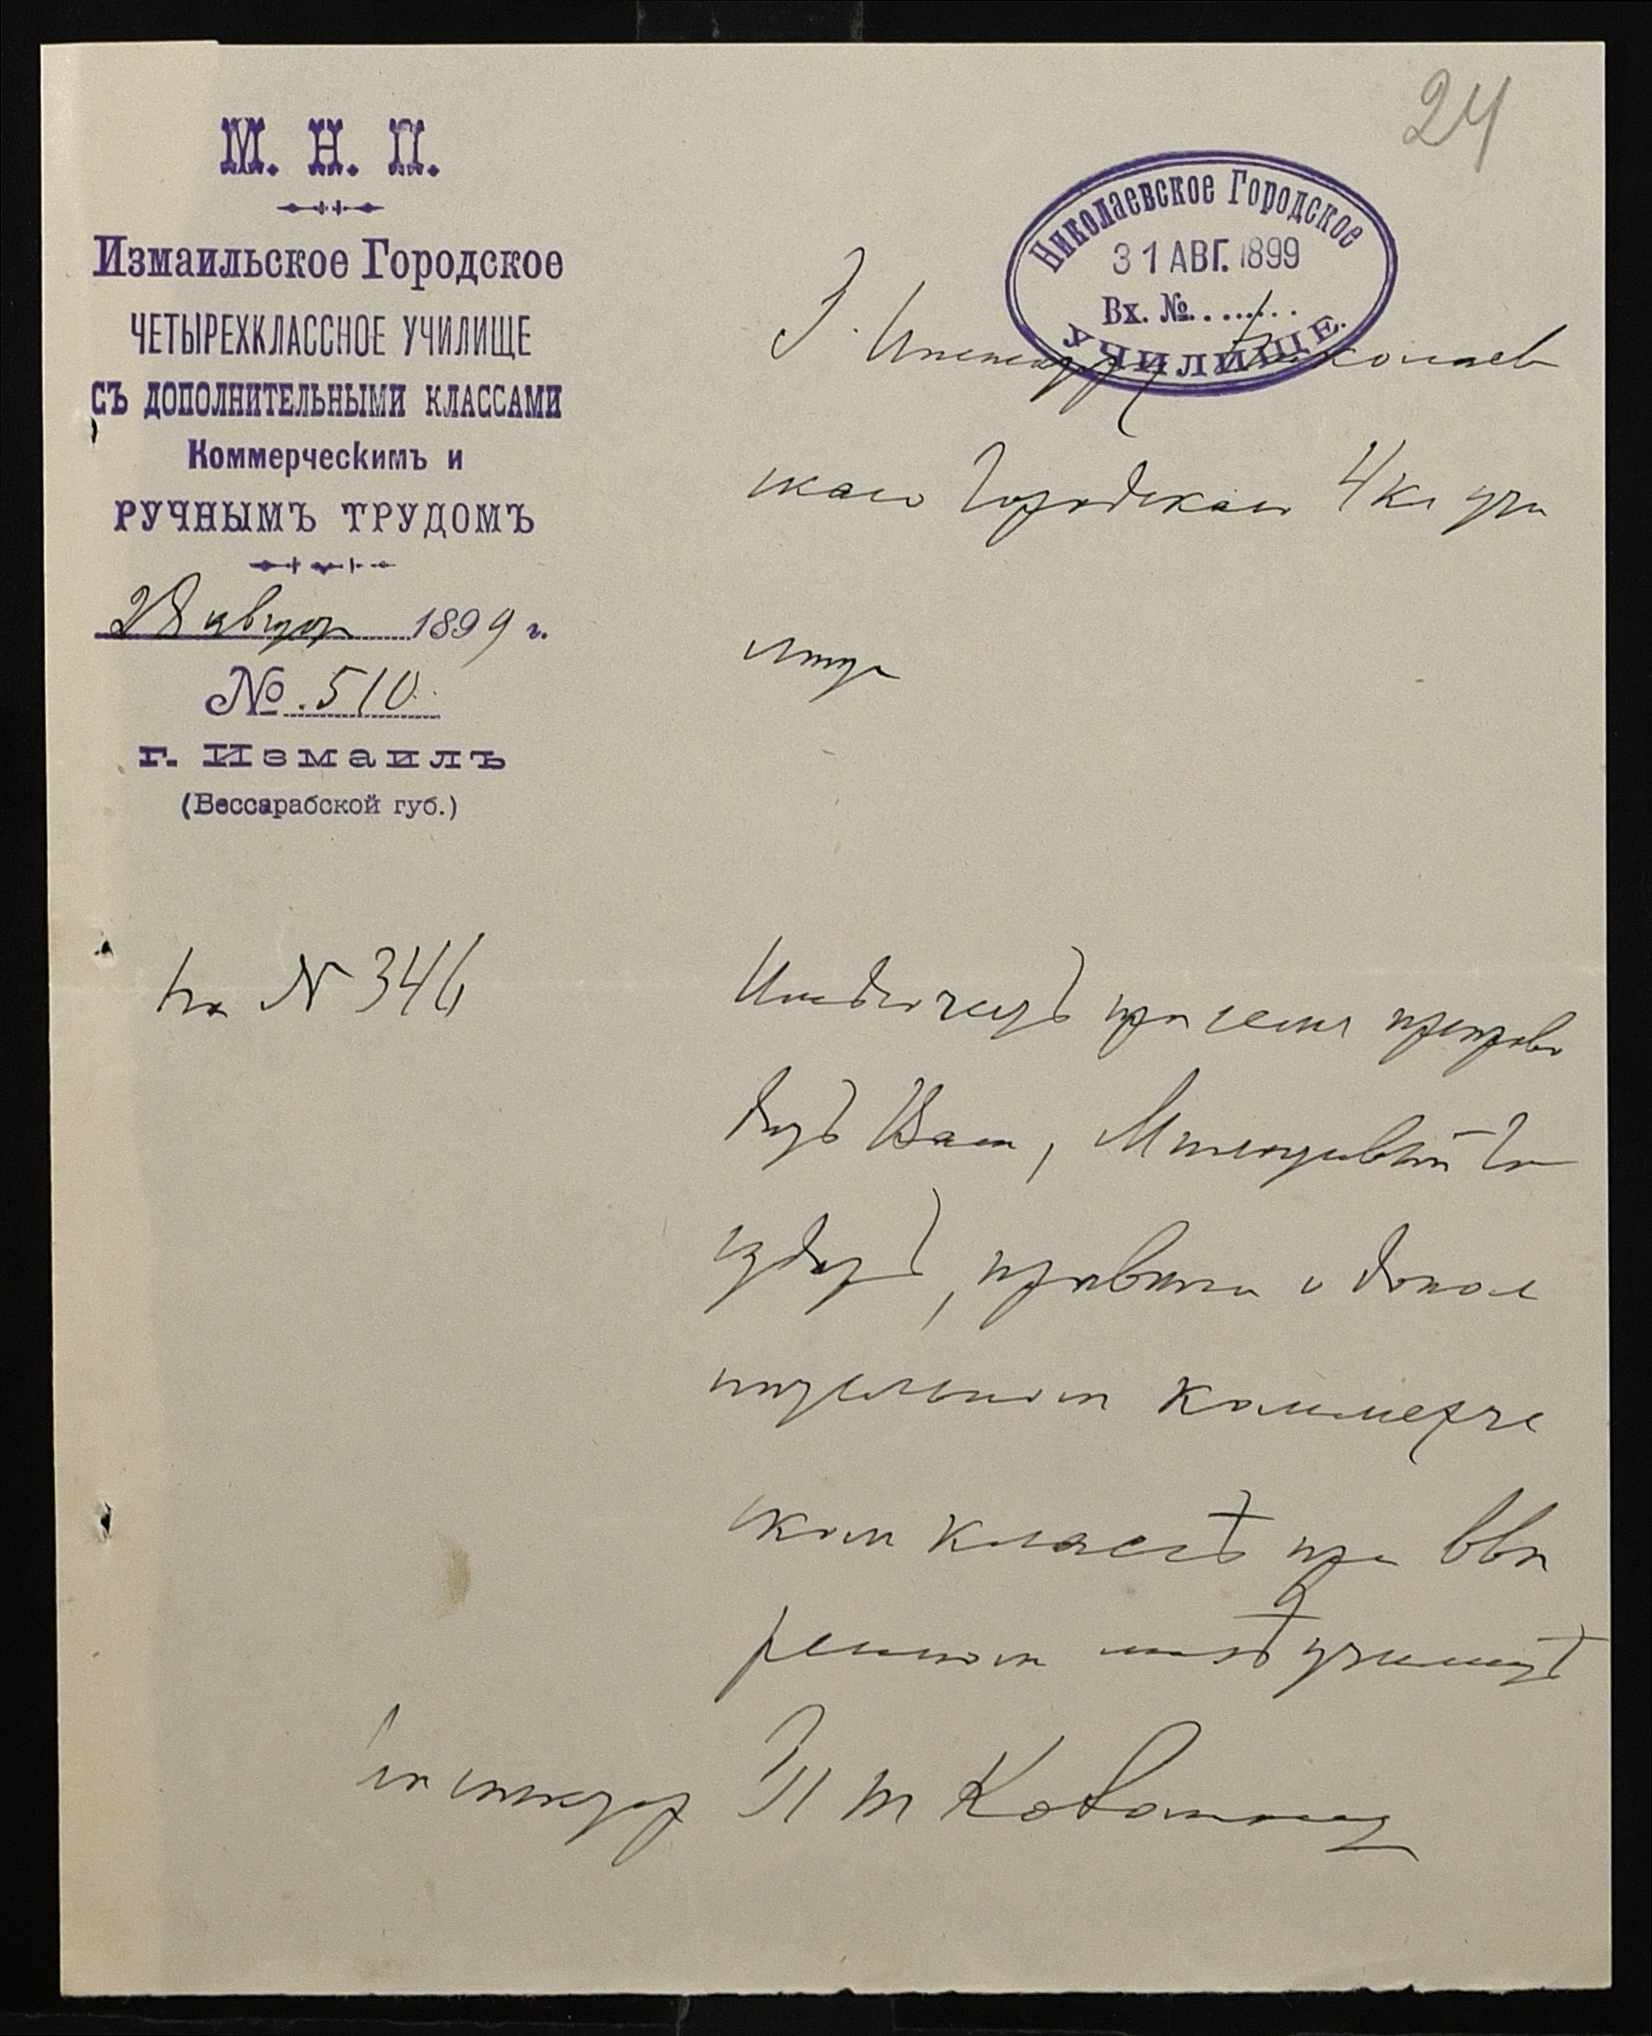 24
М. Н. П.
Измаильское Городское
ЧЕТЫРЕХКЛАССНОЕ УЧИЛИЩЕ
СЪ ДОПОЛНИТЕЛЬНЫМИ КЛАССАМИ
Коммерческимъ и
РУЧНЫМЪ ТРУДОМЪ
28 августа 1899 г.
№ 510
г. Измаилъ
(Бессарабской губ.)
Николаевское Городское
31 АВГ. 1899
Вх. №
УЧИЛИЩЕ.
Г. Инспектору Николаев
скаго Городскаго 4 кл учи
лища
на N 346
Имѣю честь при семъ препрово
дить Вам, Милостивый Го
сударь, правила о допол
нительном коммерче
ском классѣ при ввѣ
ренном мнѣ училищѣ
Инспектор